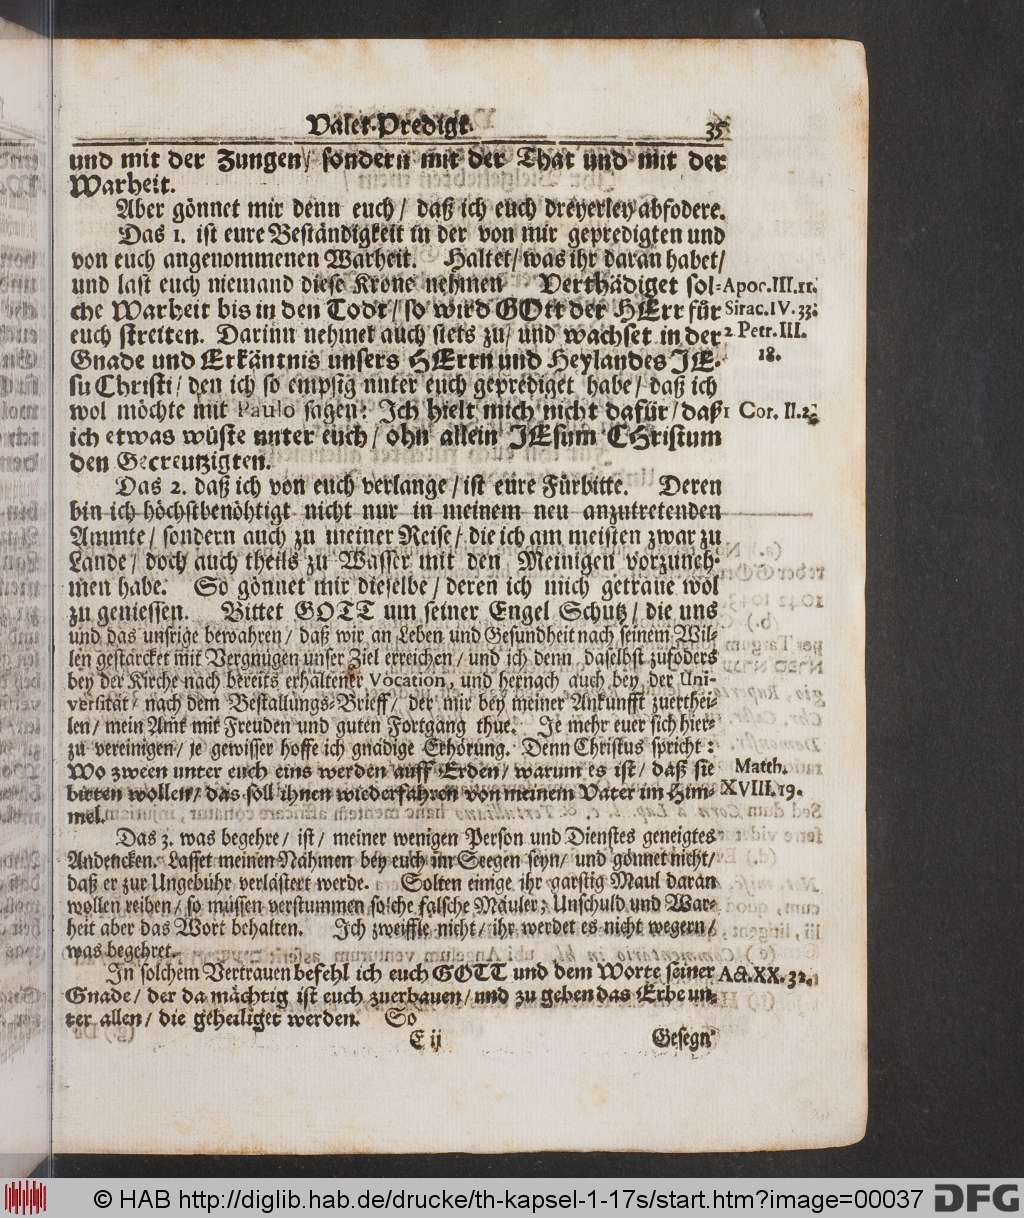 Valet-Predigt. 35
und mit der Zungen / sondern mit der That und mit der
Warheit.
Aber gönnet mir denn euch / daß ich euch dreyerley abfodere.
Das 1. ist eure Beständigkeit in der von mir gepredigten und
von euch angenommenen Warheit. Haltet / was ihr daran habet /
und last euch niemand diese Krone nehmen Verthädiget sol- Apoc. III. 11.
che Warheit bis in den Todt / so wird GOtt der HErr für Sirac. IV. 33.
euch streiten. Darinn nehmet auch stets zu / und wachset in der 2 Petr. III.
Gnade und Erkäntnis unsers HErrn und Heylandes JE- 18.
su Christi / den ich so empsig unter euch geprediget habe / daß ich
wol möchte mit Paulo sagen: Ich hielt mich nicht dafür / daß 1 Cor. II. 2.
ich etwas wüste unter euch / ohn allein JEsum CHristum
den Gecreutzigten.
Das 2. daß ich von euch verlange / ist eure Fürbitte. Deren
bin ich höchstbenöhtigt nicht nur in meinem neu anzutretenden
Ammte / sondern auch zu meiner Reise / die ich am meisten zwar zu
Lande / doch auch theils zu Wasser mit den Meinigen vorzuneh-
men habe. So gönnet mir dieselbe / deren ich mich getraue wol
zu geniessen. Bittet GOTT um seiner Engel Schutz / die uns
und das unsrige bewahren / daß wir an Leben und Gesundheit nach seinem Wil-
len gestärcket mit Vergnügen unser Ziel erreichen / und ich denn daselbst zufoders
bey der Kirche nach bereits erhaltener Vocation, und hernach auch bey der Uni-
versität / nach dem Bestallungs-Brieff / der mir bey meiner Ankunfft zuerthei-
len / mein Amt mit Freuden und guten Fortgang thue. Je mehr euer sich hier-
zu vereinigen / je gewisser hoffe ich gnädige Erhörung. Denn Christus spricht:
Wo zween unter euch eins werden auff Erden / warum es ist / daß sie Matth.
bitten wollen / das soll ihnen wiederfahren von meinem Vater im Him- XVIII. 19.
mel.
Das 3. was begehre / ist / meiner wenigen Person und Dienstes geneigtes
Andencken. Lasset meinen Nahmen bey euch im Seegen seyn / und gönnet nicht /
daß er zur Ungebühr verlästert werde. Solten einige ihr garstig Maul daran
wollen reiben / so müssen verstummen solche falsche Mäuler; Unschuld und War-
heit aber das Wort behalten. Ich zweiffle nicht / ihr werdet es nicht wegern /
was begehret.
In solchem Vertrauen befehl ich euch GOTT und dem Worte seiner Act. XX. 32.
Gnade / der da mächtig ist euch zuerbauen / und zu geben das Erbe un-
ter allen / die geheiliget werden. So
E ij Gesegn
© HAB http://diglib.hab.de/drucke/th-kapsel-1-17s/start.htm?image=00037 DFG